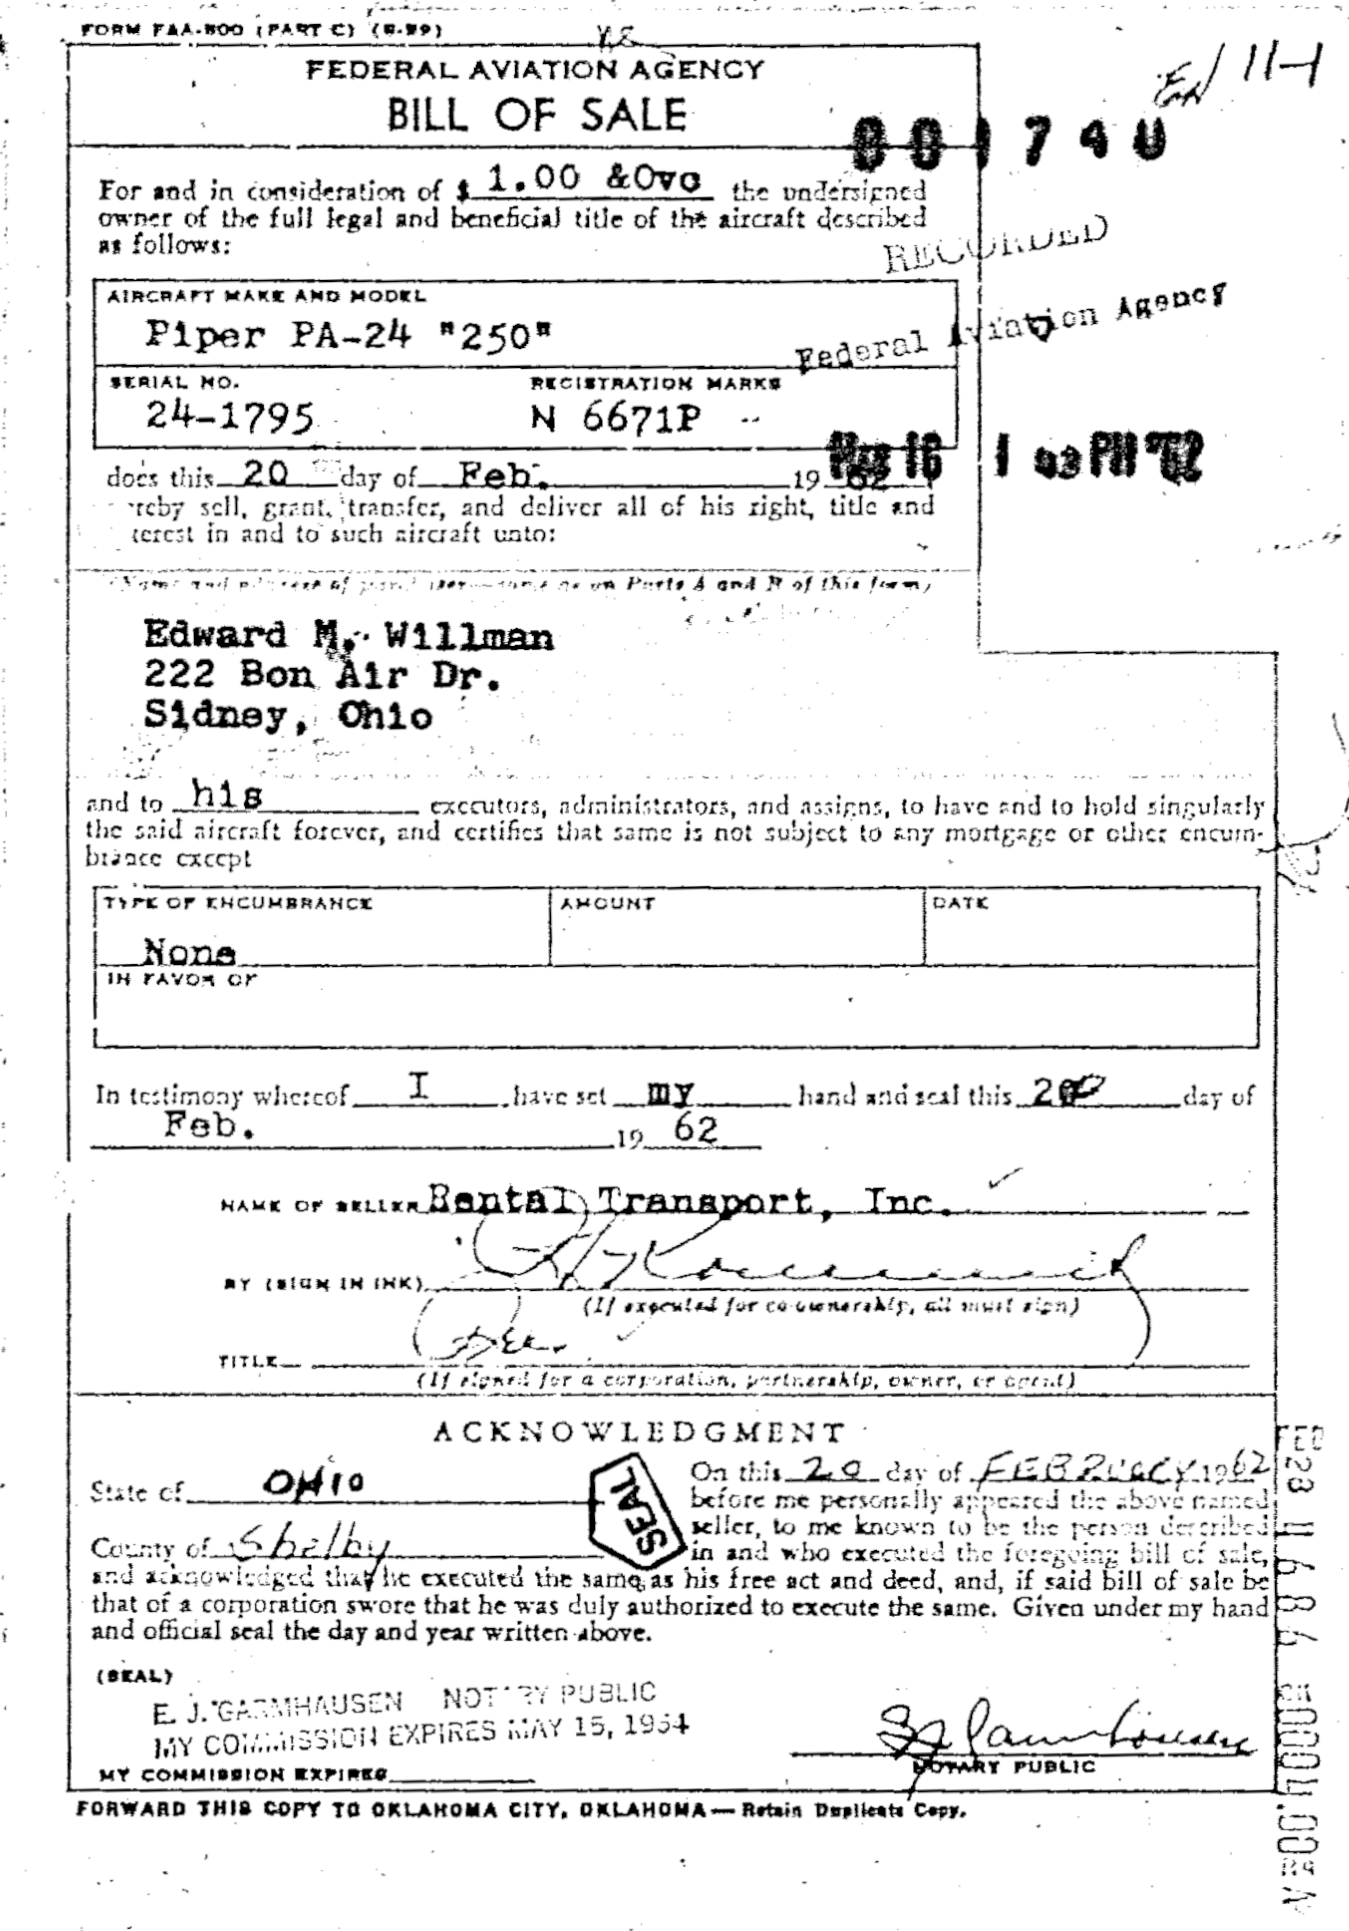 FORM FAA-500 (PART C) (8-59)
FEDERAL AVIATION AGENCY
BILL OF SALE
11-1
001740
For and in consideration of $ 1.00 &Ovc the undersigned
owner of the full legal and beneficial title of the aircraft described
as follows:
RECORDED
Federal Aviation Agency
AIRCRAFT MAKE AND MODEL
Piper PA-24 "250"
SERIAL NO. REGISTRATION MARKS
24-1795 N 6671P
Mar 16 1 03 PM '62
does this 20 day of Feb. 19 62
hereby sell, grant, transfer, and deliver all of his right, title and
interest in and to such aircraft unto:
(Name and address of purchaser—same as on Parts A and B of this form)
Edward M. Willman
222 Bon Air Dr.
Sidney, Ohio
and to his executors, administrators, and assigns, to have and to hold singularly
the said aircraft forever, and certifies that same is not subject to any mortgage or other encum-
brance except
TYPE OF ENCUMBRANCE AMOUNT DATE
None
IN FAVOR OF
In testimony whereof I have set my hand and seal this 20 day of
Feb. 19 62
NAME OF SELLER Rental Transport, Inc.
BY (SIGN IN INK)
(If executed for co-ownership, all must sign)
TITLE
(If signed for a corporation, partnership, owner, or agent)
ACKNOWLEDGMENT
State of OHIO
County of Shelby
SEAL
On this 20 day of FEBRUARY 1962
before me personally appeared the above named
seller, to me known to be the person described
in and who executed the foregoing bill of sale,
and acknowledged that he executed the same as his free act and deed, and, if said bill of sale be
that of a corporation swore that he was duly authorized to execute the same. Given under my hand
and official seal the day and year written above.
(SEAL)
E. J. GARMHAUSEN NOTARY PUBLIC
MY COMMISSION EXPIRES MAY 15, 1964
MY COMMISSION EXPIRES
NOTARY PUBLIC
FORWARD THIS COPY TO OKLAHOMA CITY, OKLAHOMA—Retain Duplicate Copy.